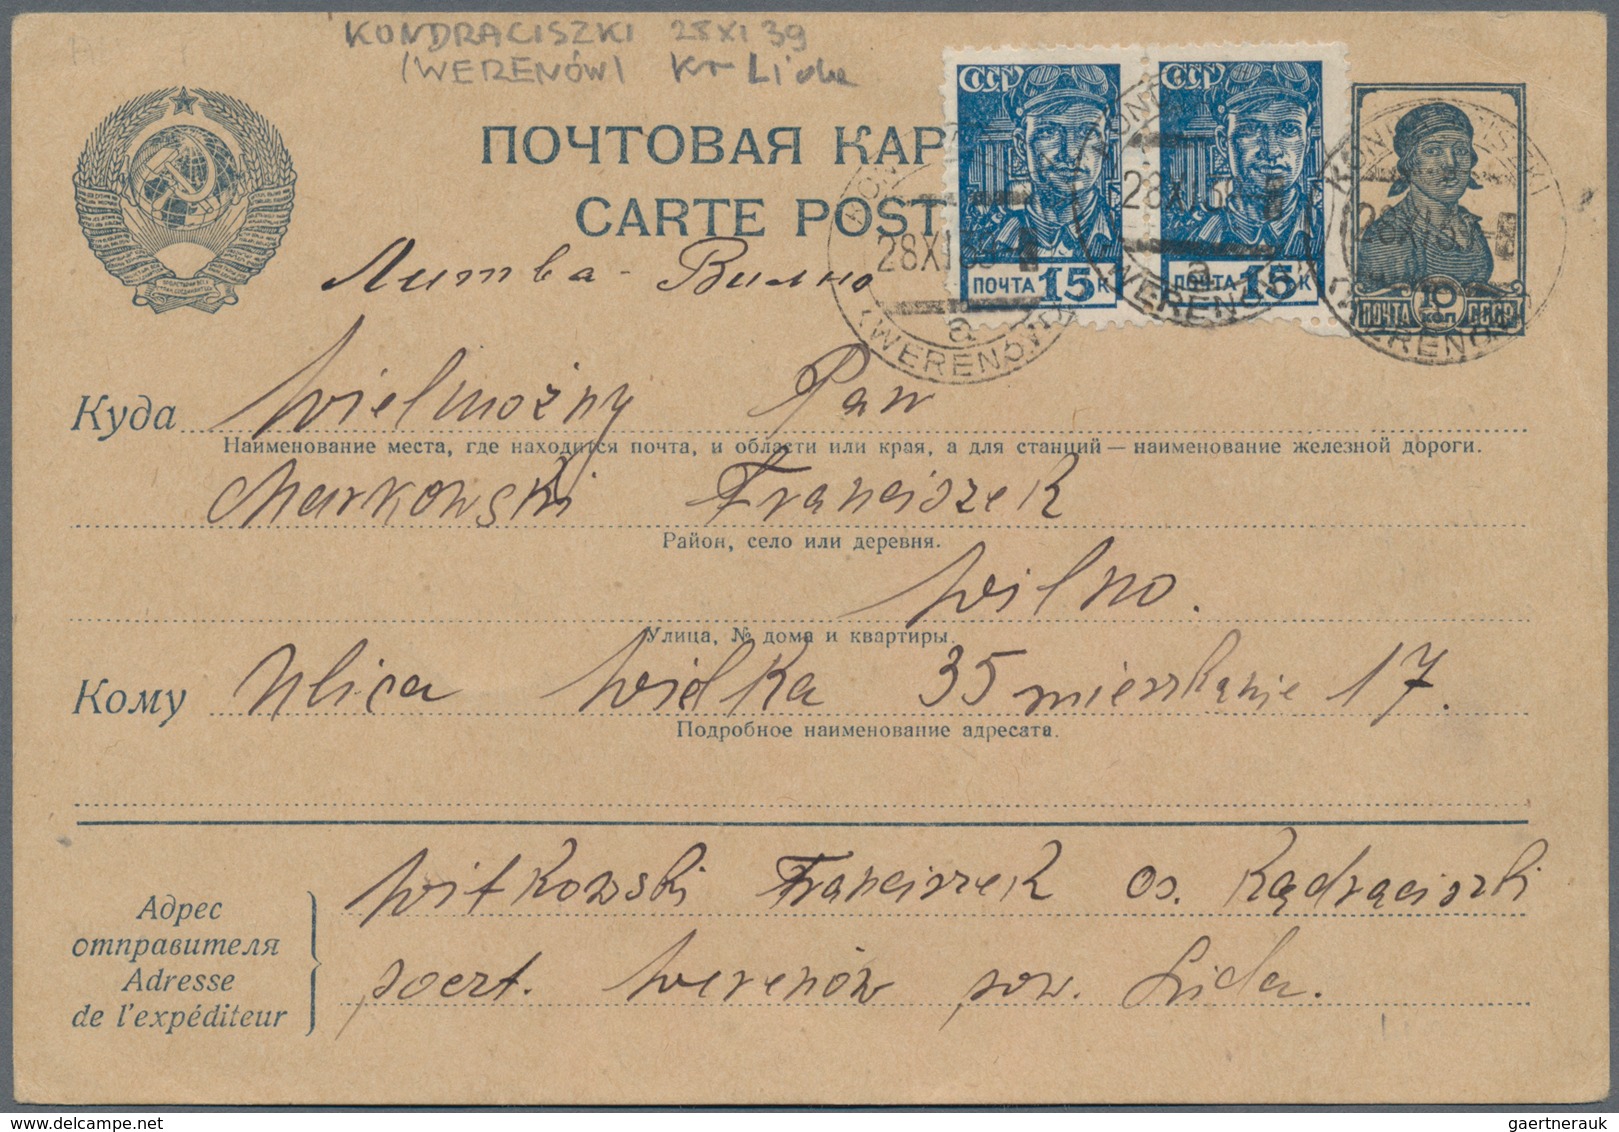 KONDRACISZKI 28 XI 39
(WERENÓW) Kr Lida
ПОЧТОВАЯ КАР
CARTE POST
СССР
ПОЧТА 15 К
СССР
ПОЧТА 15 К
ПОЧТА 10 КОП СССР
28 XI 39
a
(WERENÓW)
28 XI 39
a
(WERENÓW)
28 XI 39
(WERENÓW)
Литва - Вилно
Куда Wielmożny Pan
Наименование места, где находится почта, и области или края, а для станций — наименование железной дороги.
Markowski Franciszek
Район, село или деревня.
Wilno.
Улица, № дома и квартиры.
Кому Ulica Wielka 35 mieszkanie 17.
Подробное наименование адресата.
Адрес
отправителя
Adresse
de l'expéditeur
Witkowski Franciszek os. Kądraciszki
poczt. Werenów pow. Lida.
ПРОЛЕТАРИИ ВСЕХ СТРАН, СОЕДИНЯЙТЕСЬ!
gaertnerauk